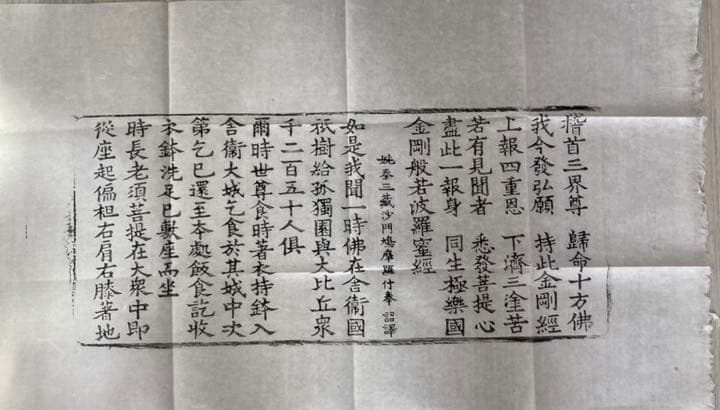 稽首三界尊　歸命十方佛
我今發弘願　持此金剛經
上報四重恩　下濟三塗苦
若有見聞者　悉發菩提心
盡此一報身　同生極樂國
金剛般若波羅蜜經
姚秦三藏沙門鳩摩羅什奉　詔譯
如是我聞一時佛在舍衛國
祇樹給孤獨園與大比丘衆
千二百五十人俱
爾時世尊食時著衣持鉢入
舍衛大城乞食於其城中次
第乞已還至本處飯食訖收
衣鉢洗足已敷座而坐
時長老須菩提在大衆中即
從座起偏袒右肩右膝著地